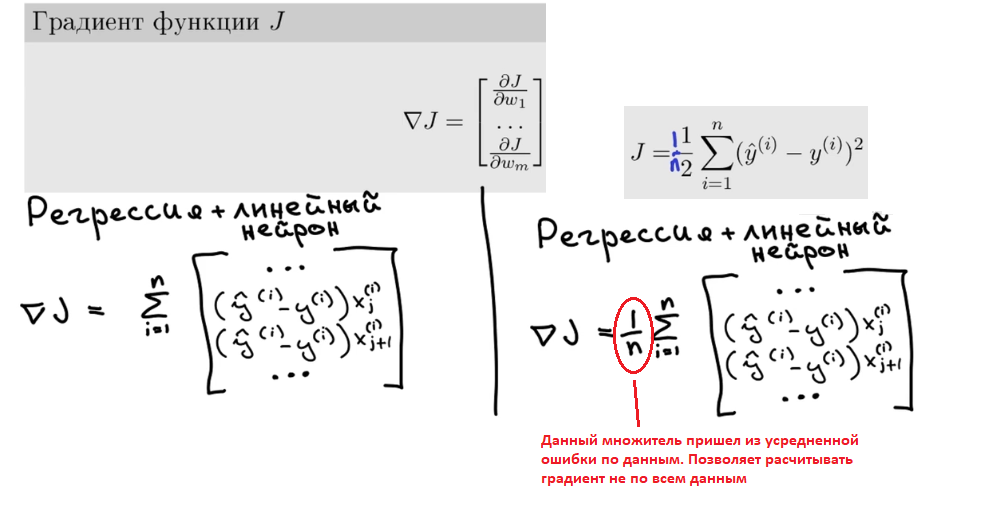 Градиент функции J
∇J = [ ∂J/∂w₁ ... ∂J/∂wₘ ]
J = 1/n 1/2 ∑ᵢ₌₁ⁿ (ŷ⁽ⁱ⁾ − y⁽ⁱ⁾)²
Регрессия + линейный
нейрон
∇J = ∑ᵢ₌₁ⁿ [ ... (ŷ⁽ⁱ⁾ − y⁽ⁱ⁾) xⱼ⁽ⁱ⁾ (ŷ⁽ⁱ⁾ − y⁽ⁱ⁾) xⱼ₊₁⁽ⁱ⁾ ... ]
Регрессия + линейный
нейрон
∇J = 1/n ∑ᵢ₌₁ⁿ [ ... (ŷ⁽ⁱ⁾ − y⁽ⁱ⁾) xⱼ⁽ⁱ⁾ (ŷ⁽ⁱ⁾ − y⁽ⁱ⁾) xⱼ₊₁⁽ⁱ⁾ ... ]
Данный множитель пришел из усредненной
ошибки по данным. Позволяет расчитывать
градиент не по всем данным